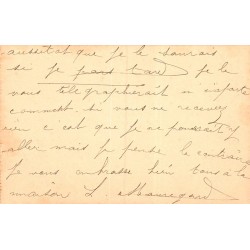 aussitot que je le saurais
si je pars tard je le
vous télégrapherait n'importe
comment. Si vous ne recevez
rien c'est que je ne pourrais
aller mais je pense le contraire
Je vous embrasse bien tous à la
maison L.